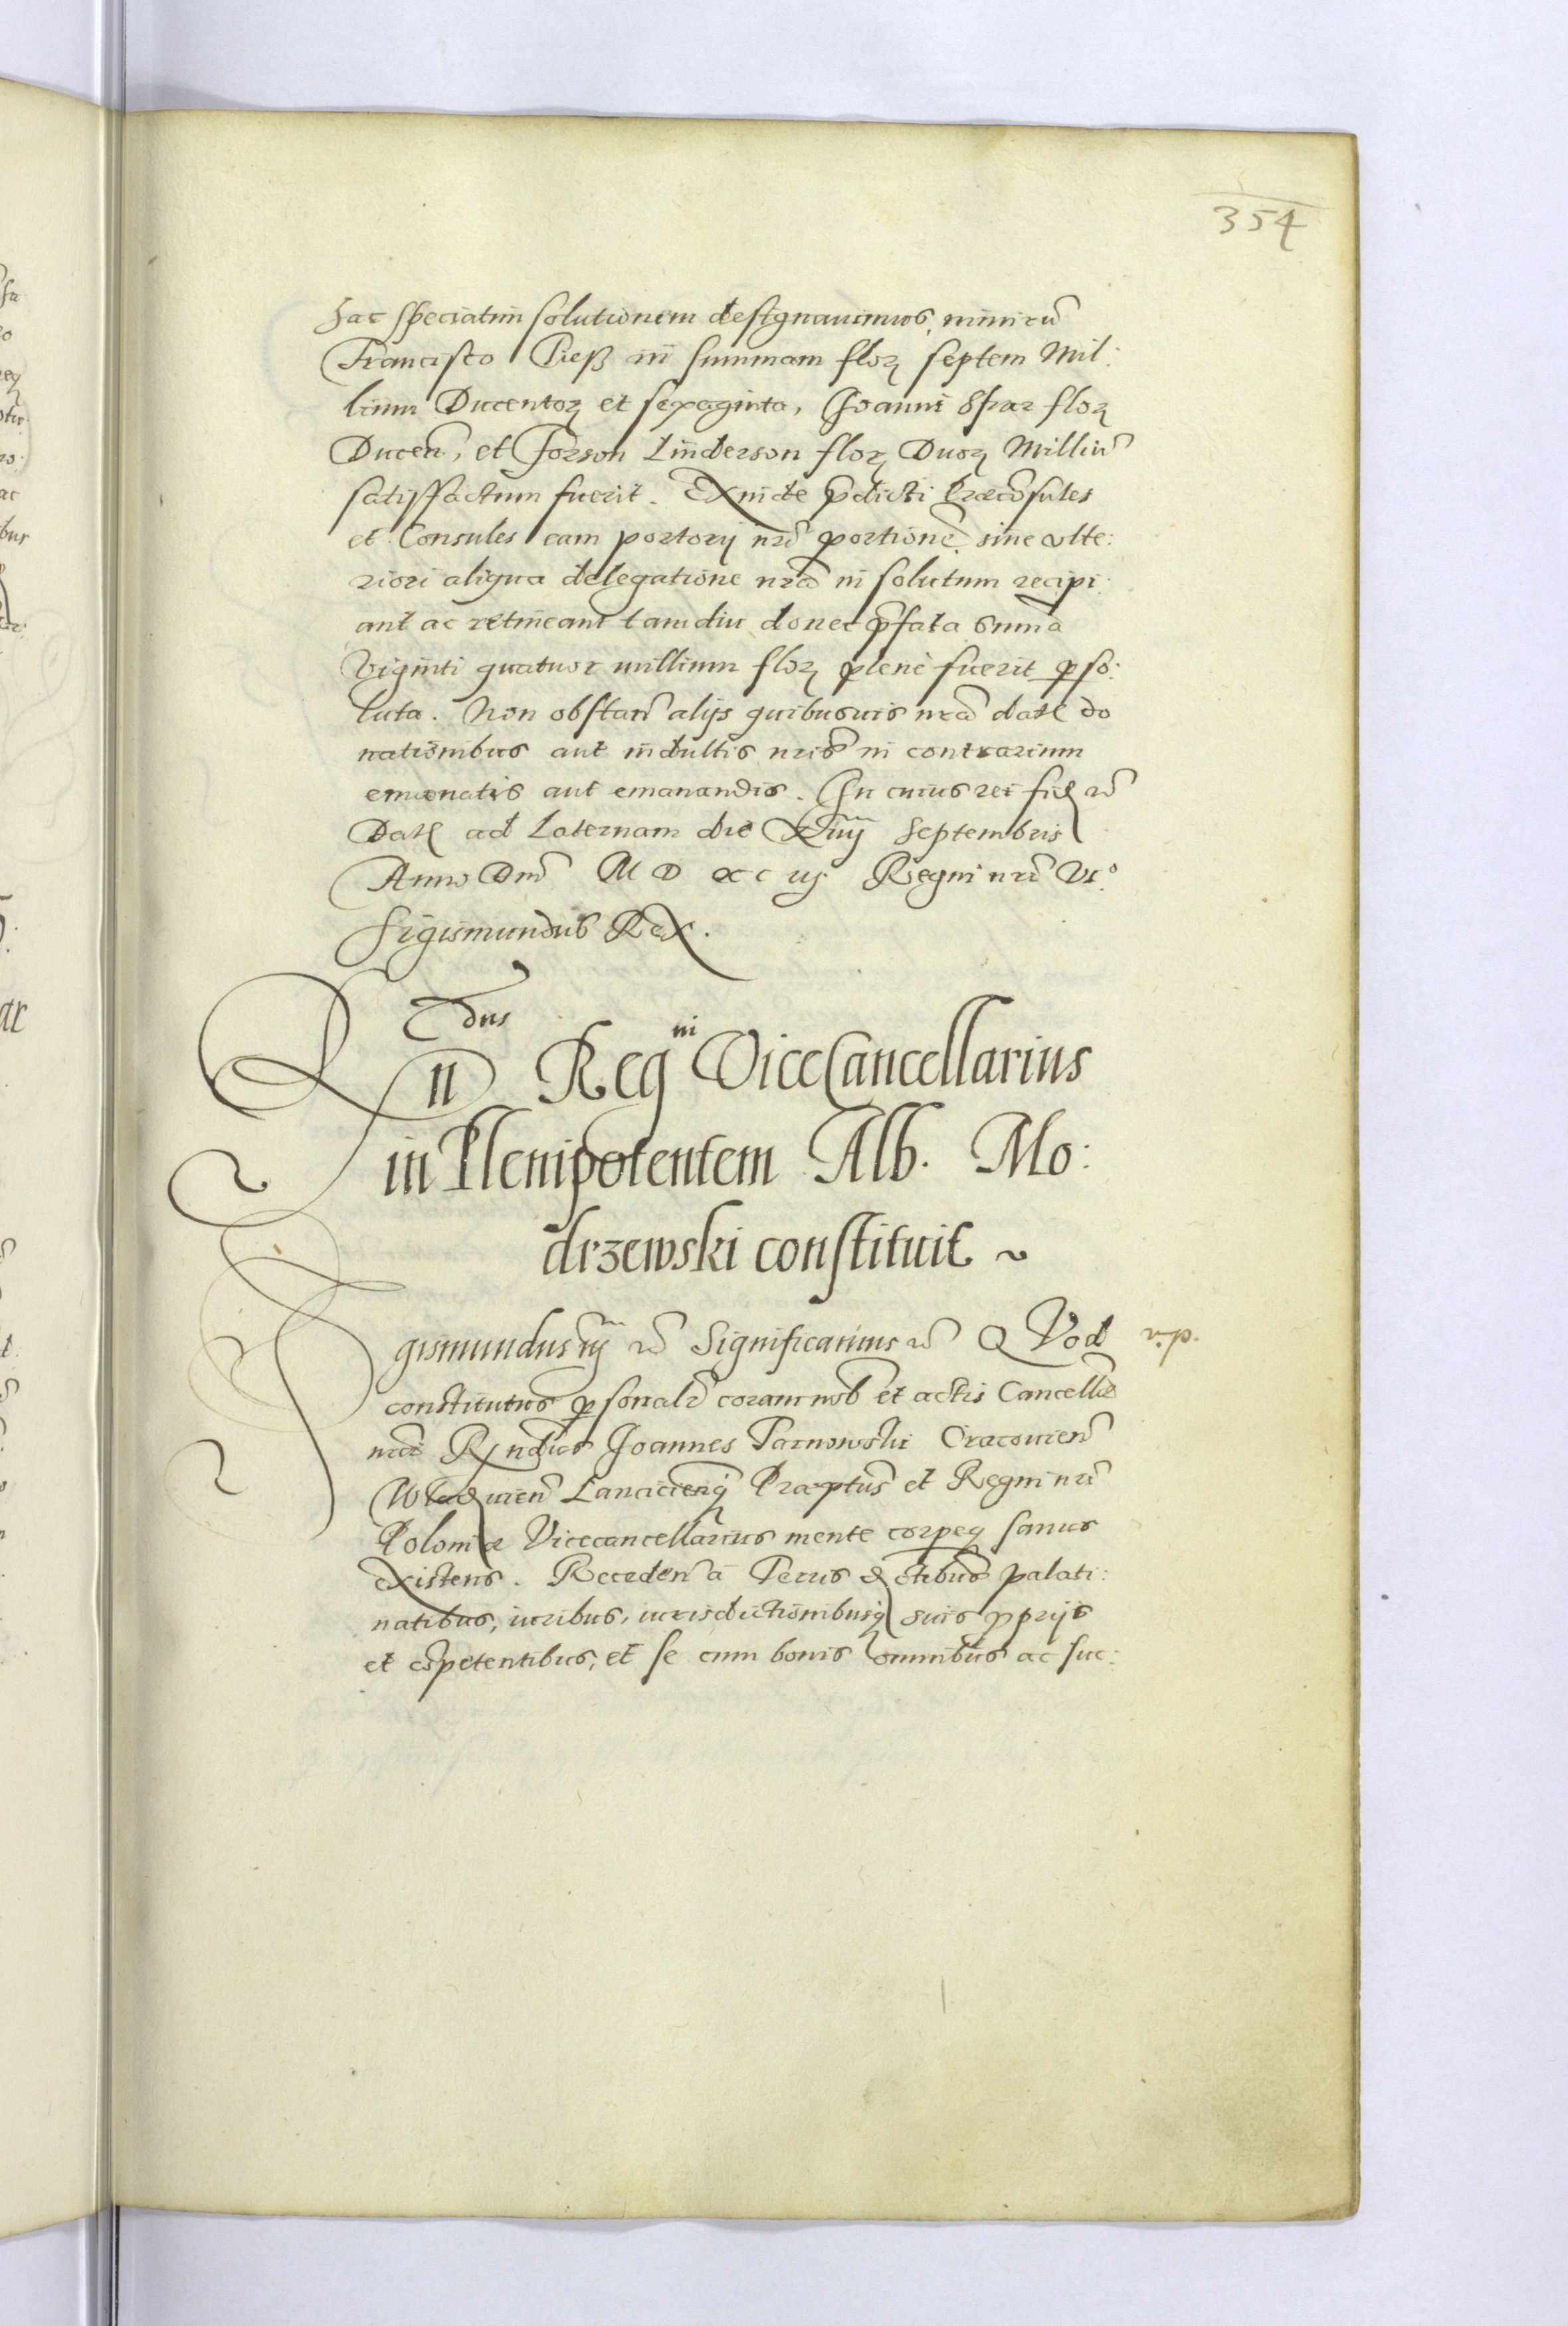 354
hac speciatim solutionem designauimus, nimirũ
Francisco Pieß in summam floꝝ septem Mil:
lium Ducentoꝝ et sexaginta, Joanni Spar floꝝ
Ducen̄, et Jorson Linderson floꝝ Duoꝝ Milliũ
satisfactum fuerit. Exinde p̄dicti Præcõsules
et Consules eam portorij nr̃i portionẽ sine vlte:
riori aliqua delegatione nr̃a in solutum recipi:
ant ac retineant tamdiu donec p̄fata sum̃a
Viginti quatuor millium floꝝ plenè fuerit ꝑso:
luta. Non obstan̄ alijs quibusuis nr̃a datꝭ do
nationibus aut indultis nr̃is in contrarium
emanatis aut emanandis. In cuius rei fidꝭ &c̃
Datꝭ ad Laternam die Xiiij Septembris
Anno Dnĩ M D xc iij Regni nr̃i Vi.º
Sigismundus Rex.
Rndus
II Regni ViceCancellarius
in Plenipotentem Alb. Mo:
drzewski constituit ~
Sigismundus iij &c̃ Significamus &c̃ QVod
v.p.
constitutus ꝑsonalr̃ coram nob̃ et actis Cancellæ
nr̃æ Rndus Joannes Tarnowski Cracouien̄
Wladꝭuien̄ Lancicien̄qꝫ Præptus̃ et Regni nr̃i
Poloniæ Vicecancellarius mente corpeqꝫ sanus
existens. Receden̄ à Terris dꝭctibus palati:
natibus, iuribus, iurisdictionibusqꝫ suis ꝓprijs
et cõpetentibus, et se cum bonis omnibus ac suc: